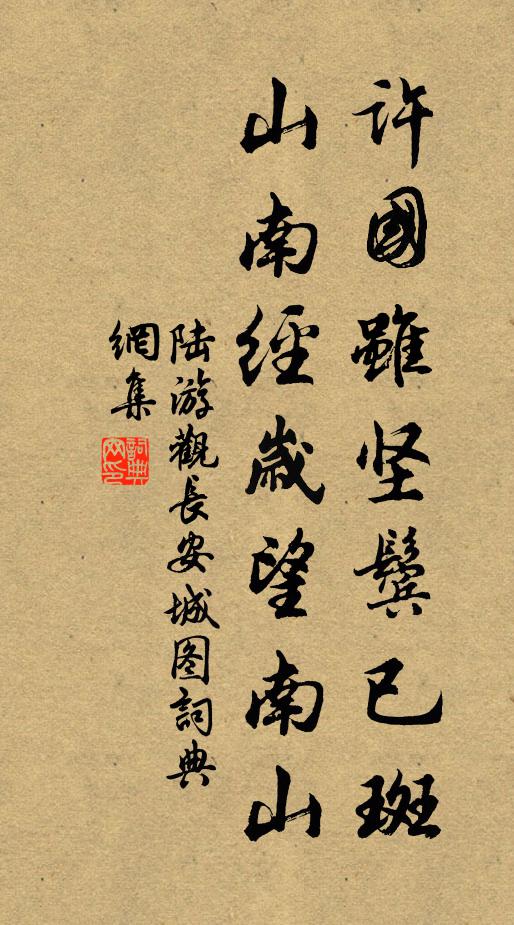 許國雖坚鬓已斑
山南經歲望南山
陆游觀長安城图詞典
網集
詞典
网印